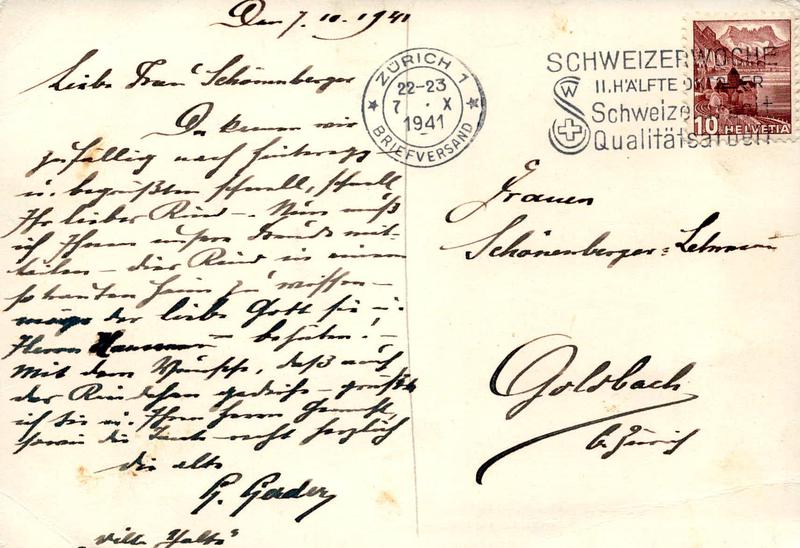 Den 7. 10. 1941
Liebe Frau Schönenberger
Da kamen wir
zufällig nach
u. begrüßten schnell, schnell
Ihr liebes Kind –. Nun muß
ich Ihnen unsere Freude mit-
teilen – das Kind in einem
so trauten Heim zu wissen –
möge der liebe Gott sie u.
Herrn – behüten! –
Mit dem Wunsche, daß auch
das Kindchen gedeihe – grüßt
ich Sie u. Ihren Herrn Gemahl,
sowie die Tante recht herzlich
die alte
G.
ZÜRICH 1
22-23
7 · X
1941
BRIEFVERSAND
SCHWEIZERWOCHE
II. HÄLFTE OKTOBER
Schweizer
Qualitätsarbeit
10 HELVETIA
Frauen
Schönenberger-Lehmann
Goldbach
b. Zürich